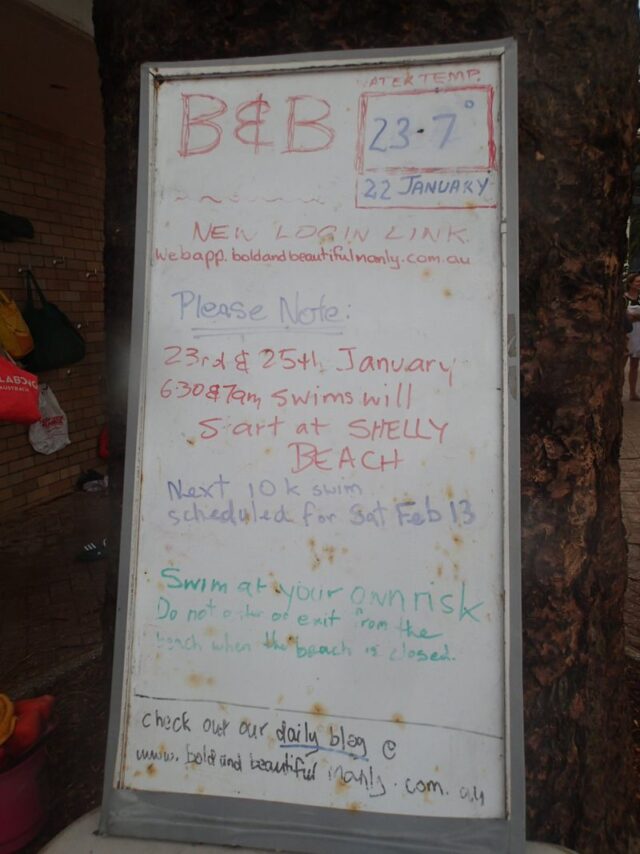 WATER TEMP.
B & B
23.7°
22 JANUARY
NEW LOGIN LINK
webapp.boldandbeautifulmanly.com.au
Please Note:
23rd & 25th January
6:30 & 7am swims will
start at SHELLY
BEACH
Next 10k swim
scheduled for Sat Feb 13
Swim at your own risk
Do not enter or exit from the
beach when the beach is closed.
check out our daily blog @
www.boldandbeautifulmanly.com.au